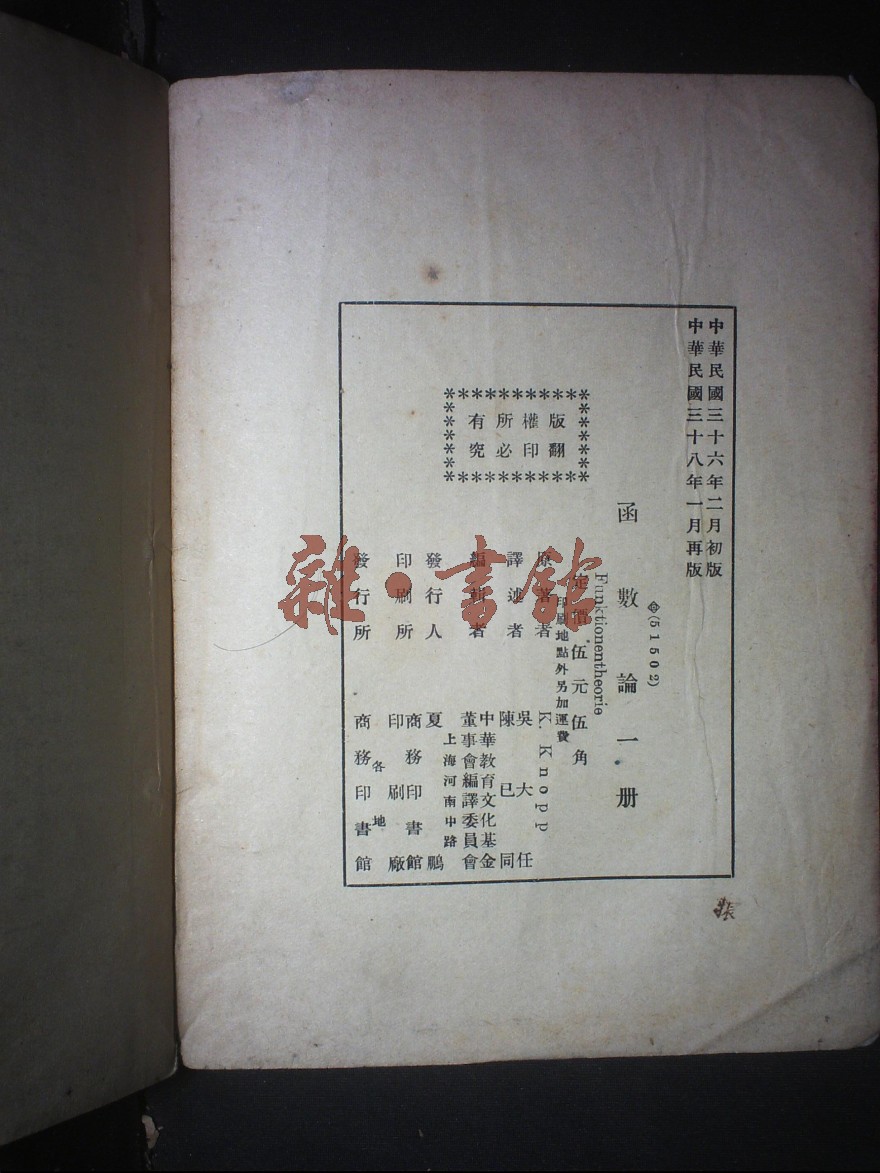 中華民國三十六年二月初版
中華民國三十八年一月再版
(51502)
函數論一册
Funktionentheorie
定價伍元伍角
印刷地點外另加運費
版權所有
翻印必究
原著者 K. Knopp
譯述者 吳大任 陳已同
編輯者 中華教育文化基金董事會編譯委員會
發行人 夏鵬
上海河南中路
印刷所 商務印書館印刷廠
發行所 商務印書館
各地
張
雜·書館